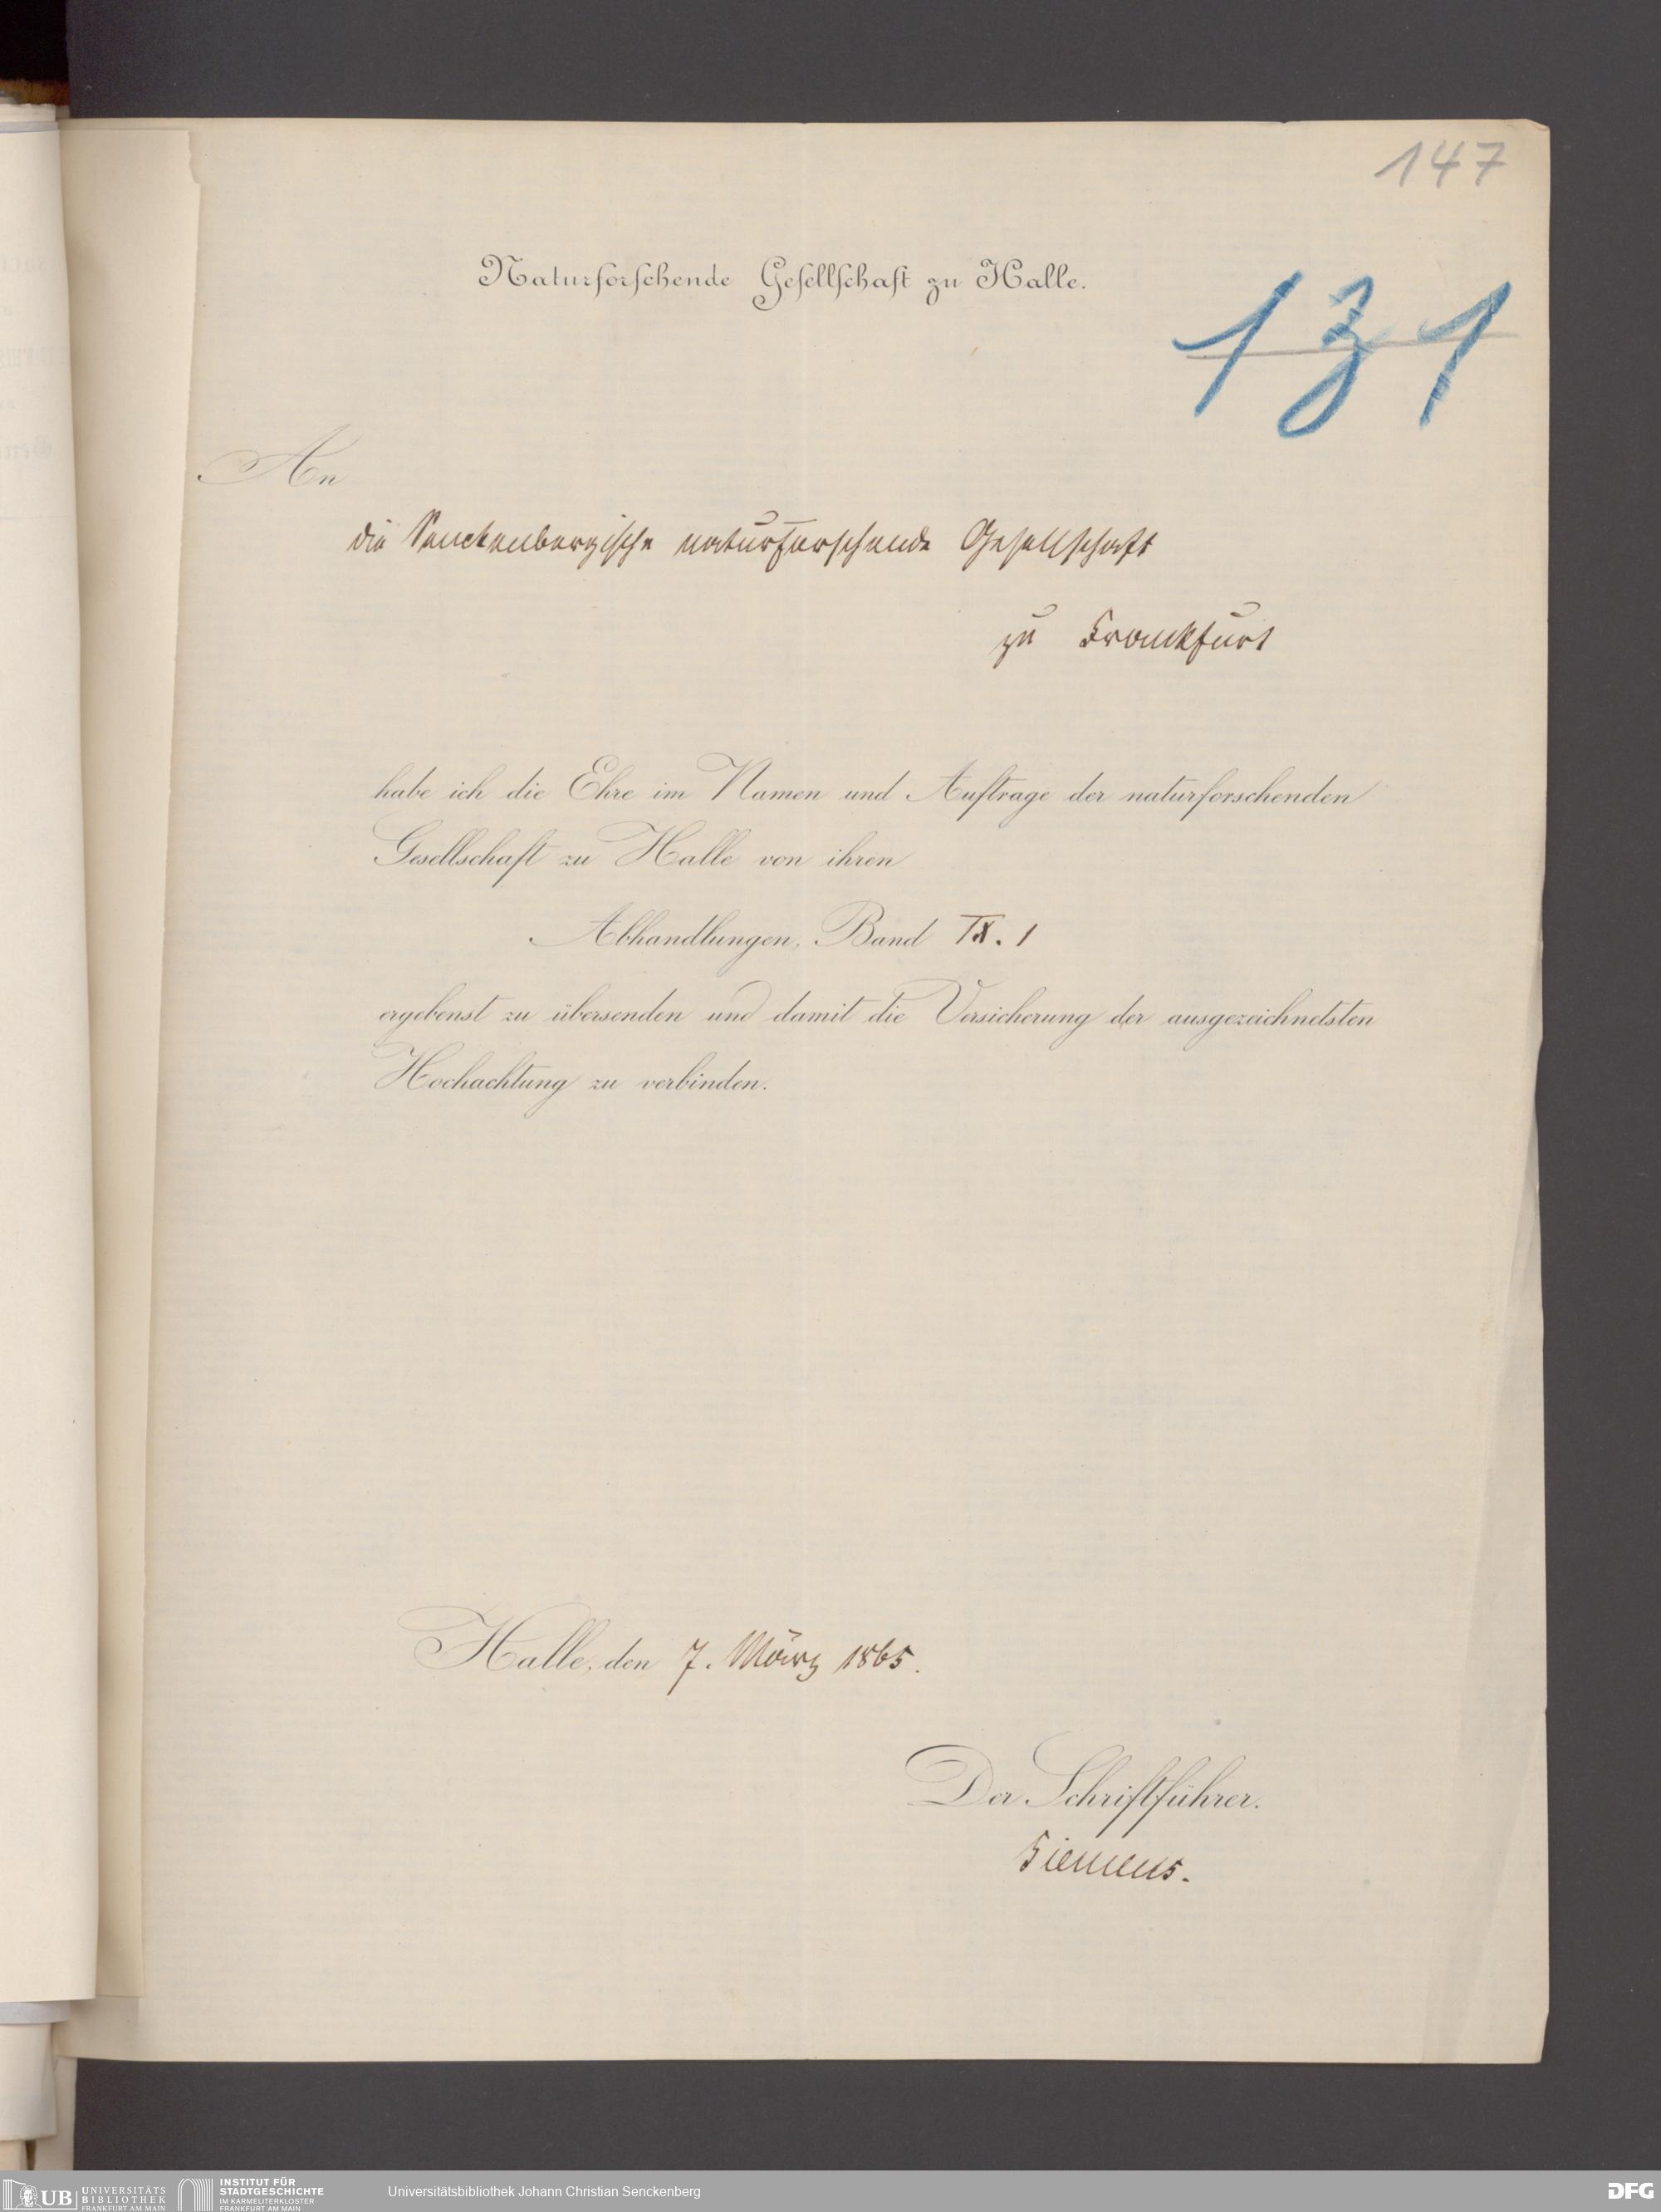 147
Naturforschende Gesellschaft zu Halle.
131
An
die Senckenbergische naturforschende Gesellschaft
zu Frankfurt
habe ich die Ehre im Namen und Auftrage der naturforschenden
Gesellschaft zu Halle von ihren
Abhandlungen, Band IX. 1
ergebenst zu übersenden und damit die Versicherung der ausgezeichnetsten
Hochachtung zu verbinden.
Halle, den 7. März 1865.
Der Schriftführer.
Siemens.
UB UNIVERSITÄTS
BIBLIOTHEK
FRANKFURT AM MAIN
INSTITUT FÜR
STADTGESCHICHTE
IM KARMELITERKLOSTER
FRANKFURT AM MAIN
Universitätsbibliothek Johann Christian Senckenberg
DFG